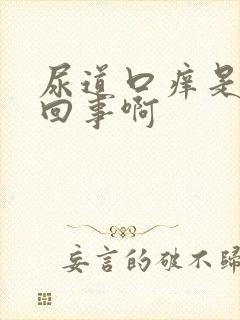 尿道口痒是
回事啊
妄言的破不歸